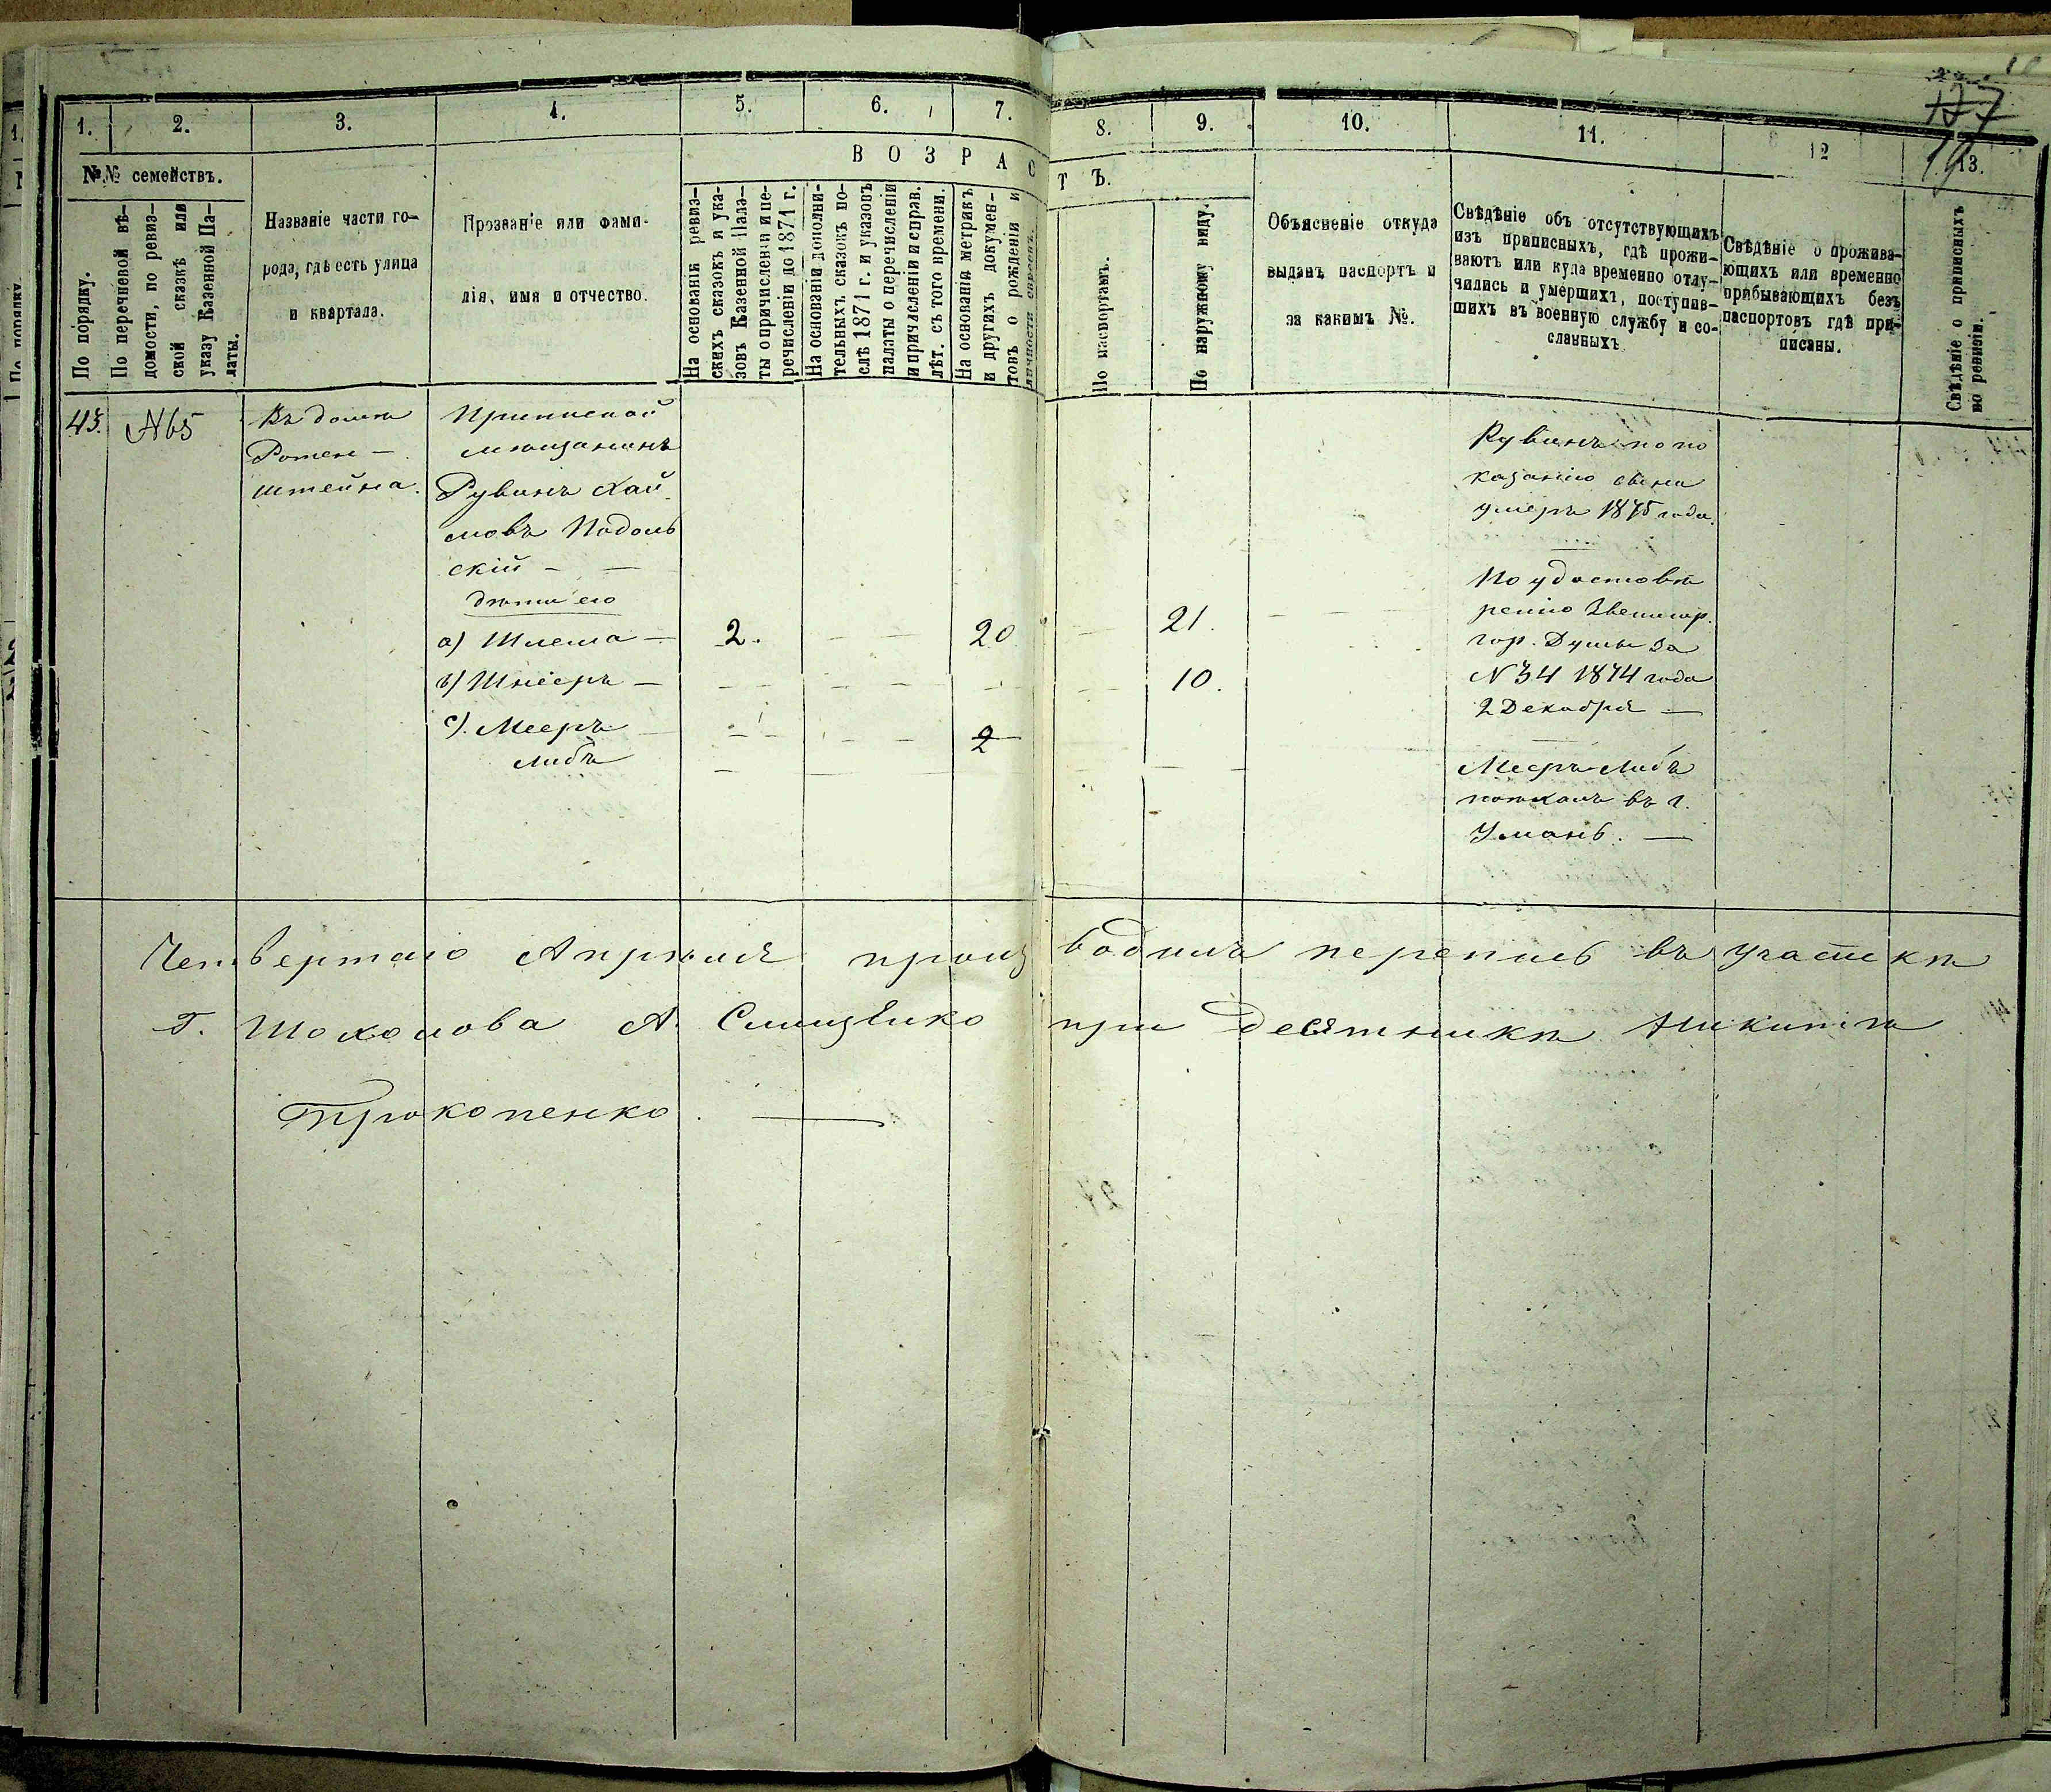 127
19
1.
2.
3.
4.
5.
6.
7.
8.
9.
10.
11.
12
13.
№№ семействъ.
По порядку.
По перечневой вѣ-
домости, по ревиз-
ской сказкѣ или
указу Казенной Па-
латы.
Названіе части го-
рода, гдѣ есть улица
и квартала.
Прозваніе или фами-
лія, имя и отчество.
ВОЗРАСТЪ.
На основаніи ревиз-
скихъ сказокъ и ука-
зовъ Казенной Пала-
ты о причисленіи и пе-
речисленіи до 1871 г.
На основаніи дополни-
тельныхъ сказокъ по-
слѣ 1871 г. и указовъ
палаты о перечисленіи
и причисленіи и справ.
лѣт. съ того времени.
На основаніи метрикъ
и другихъ докумен-
товъ о рожденіи и
По паспортамъ.
По наружному виду.
Объясненіе откуда
выданъ паспортъ и
за какимъ №.
Свѣдѣніе объ отсутствующихъ
изъ приписныхъ, гдѣ прожи-
ваютъ или куда временно отлу-
чились и умершихъ, поступив-
шихъ въ военную службу и со-
сланныхъ
Свѣдѣніе о прожива-
ющихъ или временно
прибывающихъ безъ
паспортовъ гдѣ при-
писаны.
Свѣдѣніе о приписныхъ
по ревизіи.
43.
№65
Въ домѣ
Ротен-
штейна.
Приписной
мѣщанинъ
Рувинъ Хай-
мовъ Подоль
скій -
дѣти его
а) Шлема - 2. 20 21.
в) Шнееръ - 10.
с). Мееръ
Либъ 2
Рувинъ по по
казанію сына
умеръ 1875 года.
По удостовѣ
ренію Звенигор.
гор. Думы за
№34 1874 года
2 Декабря —
Мееръ-Либъ
поѣхалъ въ г.
Умань. —
Четвертаго Апрѣля производилъ перепись въ участкѣ
Г. Шохолова А. при Десятникѣ Никитѣ
Прокопенко. —